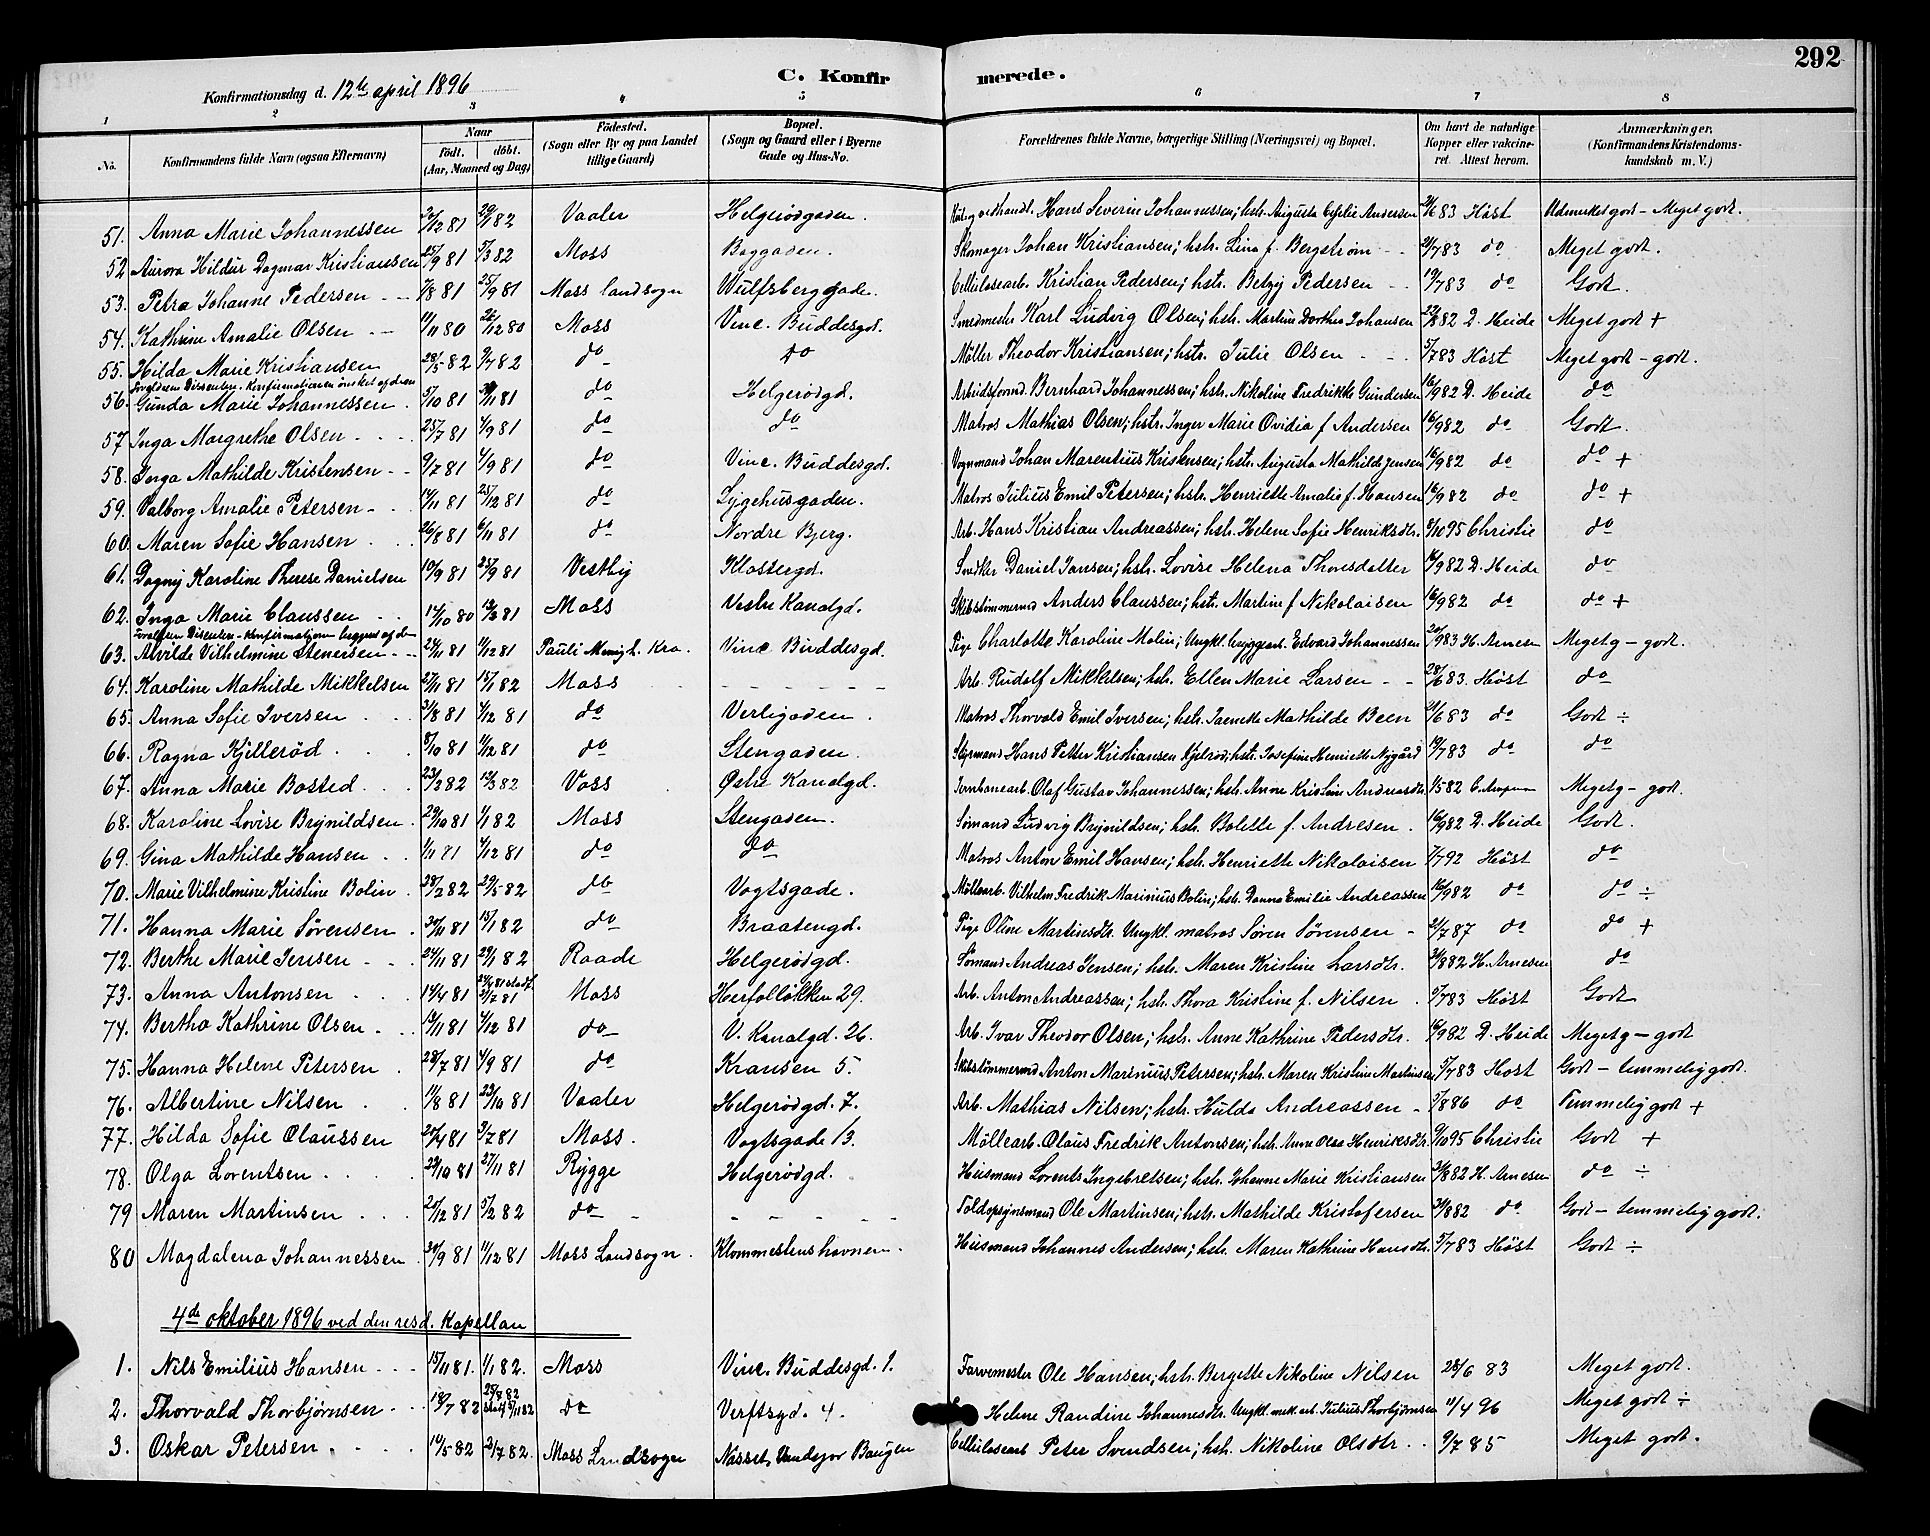 292
C. Konfirmerede.
Konfirmationsdag d. 12te april 1896
1 2 3 4 5 6 7 8
No. Konfirmandens fulde Navn (ogsaa Efternavn) Naar födt. döbt. (Aar, Maaned og Dag) Födested. (Sogn eller By og paa Landet tillige Gaard) Bopæl. (Sogn og Gaard eller i Byerne Gade og Hus-No. Forældrenes fulde Navne, borgerlige Stilling (Næringsvei) og Bopæl. Om havt de naturlige Kopper eller vakcineret. Attest herom. Anmærkninger. (Konfirmandens Kristendomskundskab m. V.)
51. Anna Marie Johannessen 29/1 82 Vaaler Helgerödgaden. vedhandl. Hans Severin Johannessen; hstr. Augusta Andersen 683 Höst Udmerket godt - Meget godt.
52 Aurora Hildur Dagmar Kristiansen 25/9 81 5/3 82 Moss Baggaden. Skomager Johan Kristiansen; hstr. Lina f. Bergström - - 783 do Meget godt.
53. Petra Johanne Pedersen - - 7/8 81 25/9 81 Moss landsogn Wulfsberggade. Cellulosearb. Kristian Pedersen; hstr. Betzy Pedersen - - 19/783 do Godt.
54. Kathrine Amalie Olsen - - 11/11 80 26/12 80 Moss Vinc. Buddesgd. Smedmester Karl Ludvig Olsen; hstr. Martine Dorthea Johansen 23/882 D. Heide Meget godt +
55. Hilda Marie Kristiansen 28/5 82 9/7 82 do do Möller Theodor Kristiansen; hstr. Julie Olsen - - - 5/783 Höst Meget godt - godt.
Forældrene Dissenter. Konfirmationen önsket af dem
56. Gunda Marie Johannessen . 5/10 81 /11 81 do Helgerödgd. Arbeidsformd. Bernhard Johannessen; hstr. Nikoline Fredrikke Gundersen 16/982 D. Heide do
57 Inga Margrethe Olsen - - - 25/7 81 4/9 81 do do Matros Mathias Olsen; hstr. Inger Marie Ovidia f Andersen 16/982 do Godt.
58. Inga Mathilde Kristensen - - 9/7 81 4/9 81 do Vinc. Buddesgd. Vognmand Johan Marentius Kristensen; hstr. Augusta Mathilde Jensen 16/982 do do +
59. Valborg Amalie Petersen - . 14/11 81 25/12 81 do Sygehusgaden. Matros Julius Emil Petersen; hstr. Henriette Amalie f. Hansen 16/982 do do +
60. Maren Sofie Hansen . . . 26/8 81 6/11 81 do Nordre Bjerg. Arb. Hans Kristian Andreassen; hstr. Helene Sofie Henriksdtr. 8/1095 Christie do
61. Dagny Karoline Therese Danielsen 10/9 81 25/9 81 Vestby Klostergd. Snedker Daniel Jansen; hstr. Lovise Helena Thoresdatter 16/982 D. Heide do
62. Inga Marie Claussen - - 14/10 80 13/3 81 Moss Vestre Kanalgd. Skibstömmermd Anders Claussen; hstr. Martine f Nikolaisen 16/982 do do +
Forældrene Dissenter - Konfirmation begjært af dem
63. Alvilde Vilhelmine Stenersen - - 24/11 81 11/12 81 Pauli Menigh. Kra. Vinc. Buddesgd. Pige Charlotte Karoline Molin; Ungkl. bryggearb. Edvard Johannessen 20/983 H. Arnesen Megetg - godt.
64. Karoline Mathilde Mikkelsen 27/11 81 15/1 82 Moss - - - - - - Arb. Rudolf Mikkelsen; hstr. Ellen Marie Larsen - - 28/683. Höst do
65. Anna Sofie Iversen . . . 31/8 81 4/12 81 do Verligaden. Matros Thorvald Emil Iversen; hstr. Jacnette Mathilde Been 21/683 do Godt ÷
66. Ragna Kjilleröd . . . 8/10 81 11/12 81 do Stengaden. Styrmand Hans Petter Kristiansen Kjelröd; hstr. Josefine Henriette Nygård 19/783 do do
67. Anna Marie Bosted . . . 23/2 82 12/3 82 Voss Östre Kanalgd. Jernbanearb. Olaf Gustav Johannessen; hstr. Anne Kristine Andreasdtr. 1/582 Megetg - godt.
68. Karoline Lovise Brynildsen . 29/10 81 1/1 82 Moss Stengaden. Sömand Ludvig Brynildsen; hstr. Bolette f. Andresen . 16/982 D. Heide Godt.
69. Gina Mathilde Hansen . . 1/11 81 4/12 81 do do Matros Anton Emil Hansen; hstr. Henriette Nikolaisen 7/792 Höst do
70. Marie Vilhelmine Kristine Bolin . 28/2 82 29/5 82 do Vogtsgade. Möllearb. Vilhelm Fredrik Marinius Bolin; hstr. Danna Emilie Andreassen 16/982 do do ÷
71. Hanna Marie Sörensen . 30/11 81 15/1 82 do Braatengd. Pige Oline Martinsdtr. Ungkl. matros Sören Sörensen - 21/787 do do +
72. Berthe Marie Jensen - . . 24/11 81 29/1 82 Raade Helgerödgd. Sömand Andreas Jensen; hstr. Maren Kristine Larsdtr. 31/882 H. Arnesen do
73. Anna Antonsen . . . 14/4 81 24/4 81 stadf. 3/7 81 Moss Herfollökken 29. Arb. Anton Andreassen; hstr. Thora Kristine f. Nilsen . 5/783 Höst Godt
74. Bertha Kathrine Olsen - . 13/11 81 4/12 81 do V. Kanalgd. 26. Arb. Ivar Theodor Olsen; hstr. Anne Kathrine Pedersdtr. 16/982 D. Heide Megetg - godt
75. Hanna Helene Petersen . 28/7 81 4/9 81 do Kransen 5. Skibstömmermd Anton Marinius Petersen; hstr. Maren Kristine Martinsen 5/783 Höst Godt - temmelig godt.
76. Albertine Nilsen . . 11/8 81 23/10 81 Vaaler Helgerödgd. 7. Arb. Mathias Nilsen; hstr. Hulda Andreassen - 3/886 do Temmelig godt +
77. Hilda Sofie Olaussen 20/4 81 3/7 81 Moss. Vogtsgade 13. Möllearb. Olaus Fredrik Antonsen; hstr. Anne Olea Henriksdtr. 9/1095 Christie Godt +
78. Olga Lorentsen . . . . 29/10 81 27/11 81 Rygge Helgerödgd. Husmand Lorents Ingebretsen; hstr. Johanne Marie Kristiansen 31/882 H. Arnesen do ÷
79 Maren Martinsen . . . 25/12 81 5/2 82 do - - - - - - - Toldopsynsmand Ole Martinsen; hstr. Mathilde Kristofersen 31/882 do Godt - temmelig godt.
80 Magdalena Johannessen . 30/9 81 11/12 81 Moss Landsogn. Klommestenshavnen. Husmand Johannes Andersen; hstr. Maren Kathrine Hansdtr. 5/783 Höst Godt ÷
4de oktober 1896 ved den resd. Kapellan
1. Nils Emilius Hansen - - - 15/11 81. 1/1 82. Moss Vinc. Buddesgd. 1. Farvemester Ole Hansen; hstr. Bergette Nikoline Nilsen 28/6 83 Meget godt.
2. Thorvald Thorbjörnsen - - - 18/7 82 do Verftsgd. 4. Helene Randine Johannesdtr. Ungkl. mek. arb. Julius Thorbjörnsen 11/4 96 Meget godt ÷
3. Oskar Petersen . . . . 14/5 82 2/7 82. Moss Landsogn Nesset, Vandsjor Baugen Cellulosearb Peter Svendsen; hstr. Nikoline Olsdtr. . . 9/7 85 Meget godt.